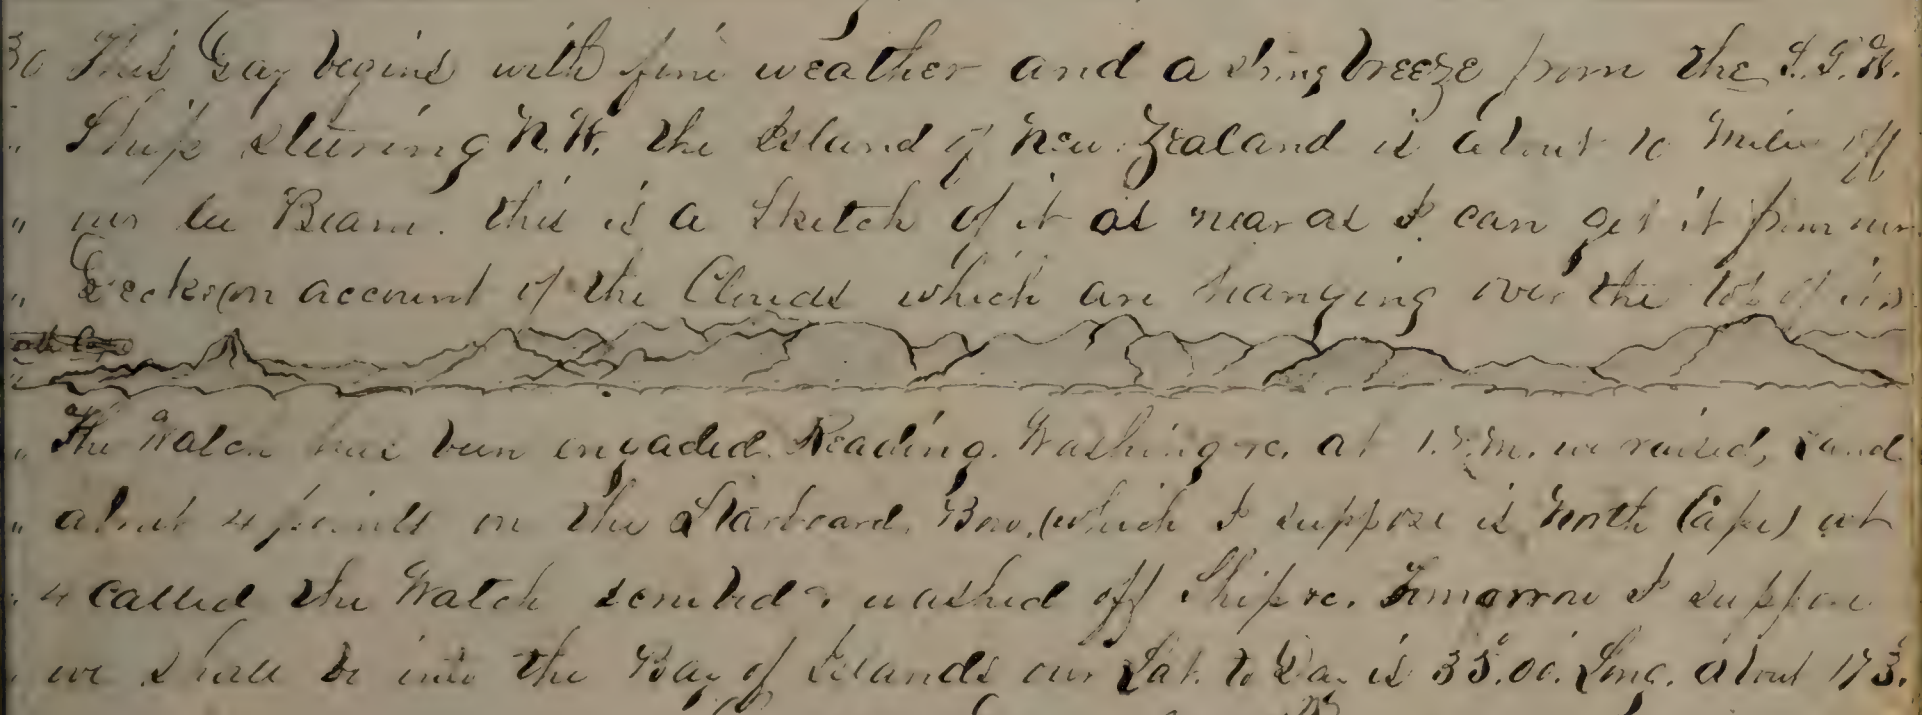 30 This Day begins with fine weather and a string breeze from the S.S.W.
" Ship sturing N.W. the Island of New Zealand is about 10 miles off
" our lee Beam. this is a Sketch of it as near as I can get it from our
" Decks on account of the Clouds which are hanging over the top of it
" The Watch has been engaded. Reading. Washing &c. at 1. P.M. we raised, Land
" about 4 points on the Starboard. Bow. (which I suppose is North Cape) at
" 4 called the Watch scrubed & washed off Ship &c. Tomorrow I suppose
" we shall be into the Bay of Islands our Lat. to Day is 35.00. Long. about 173.